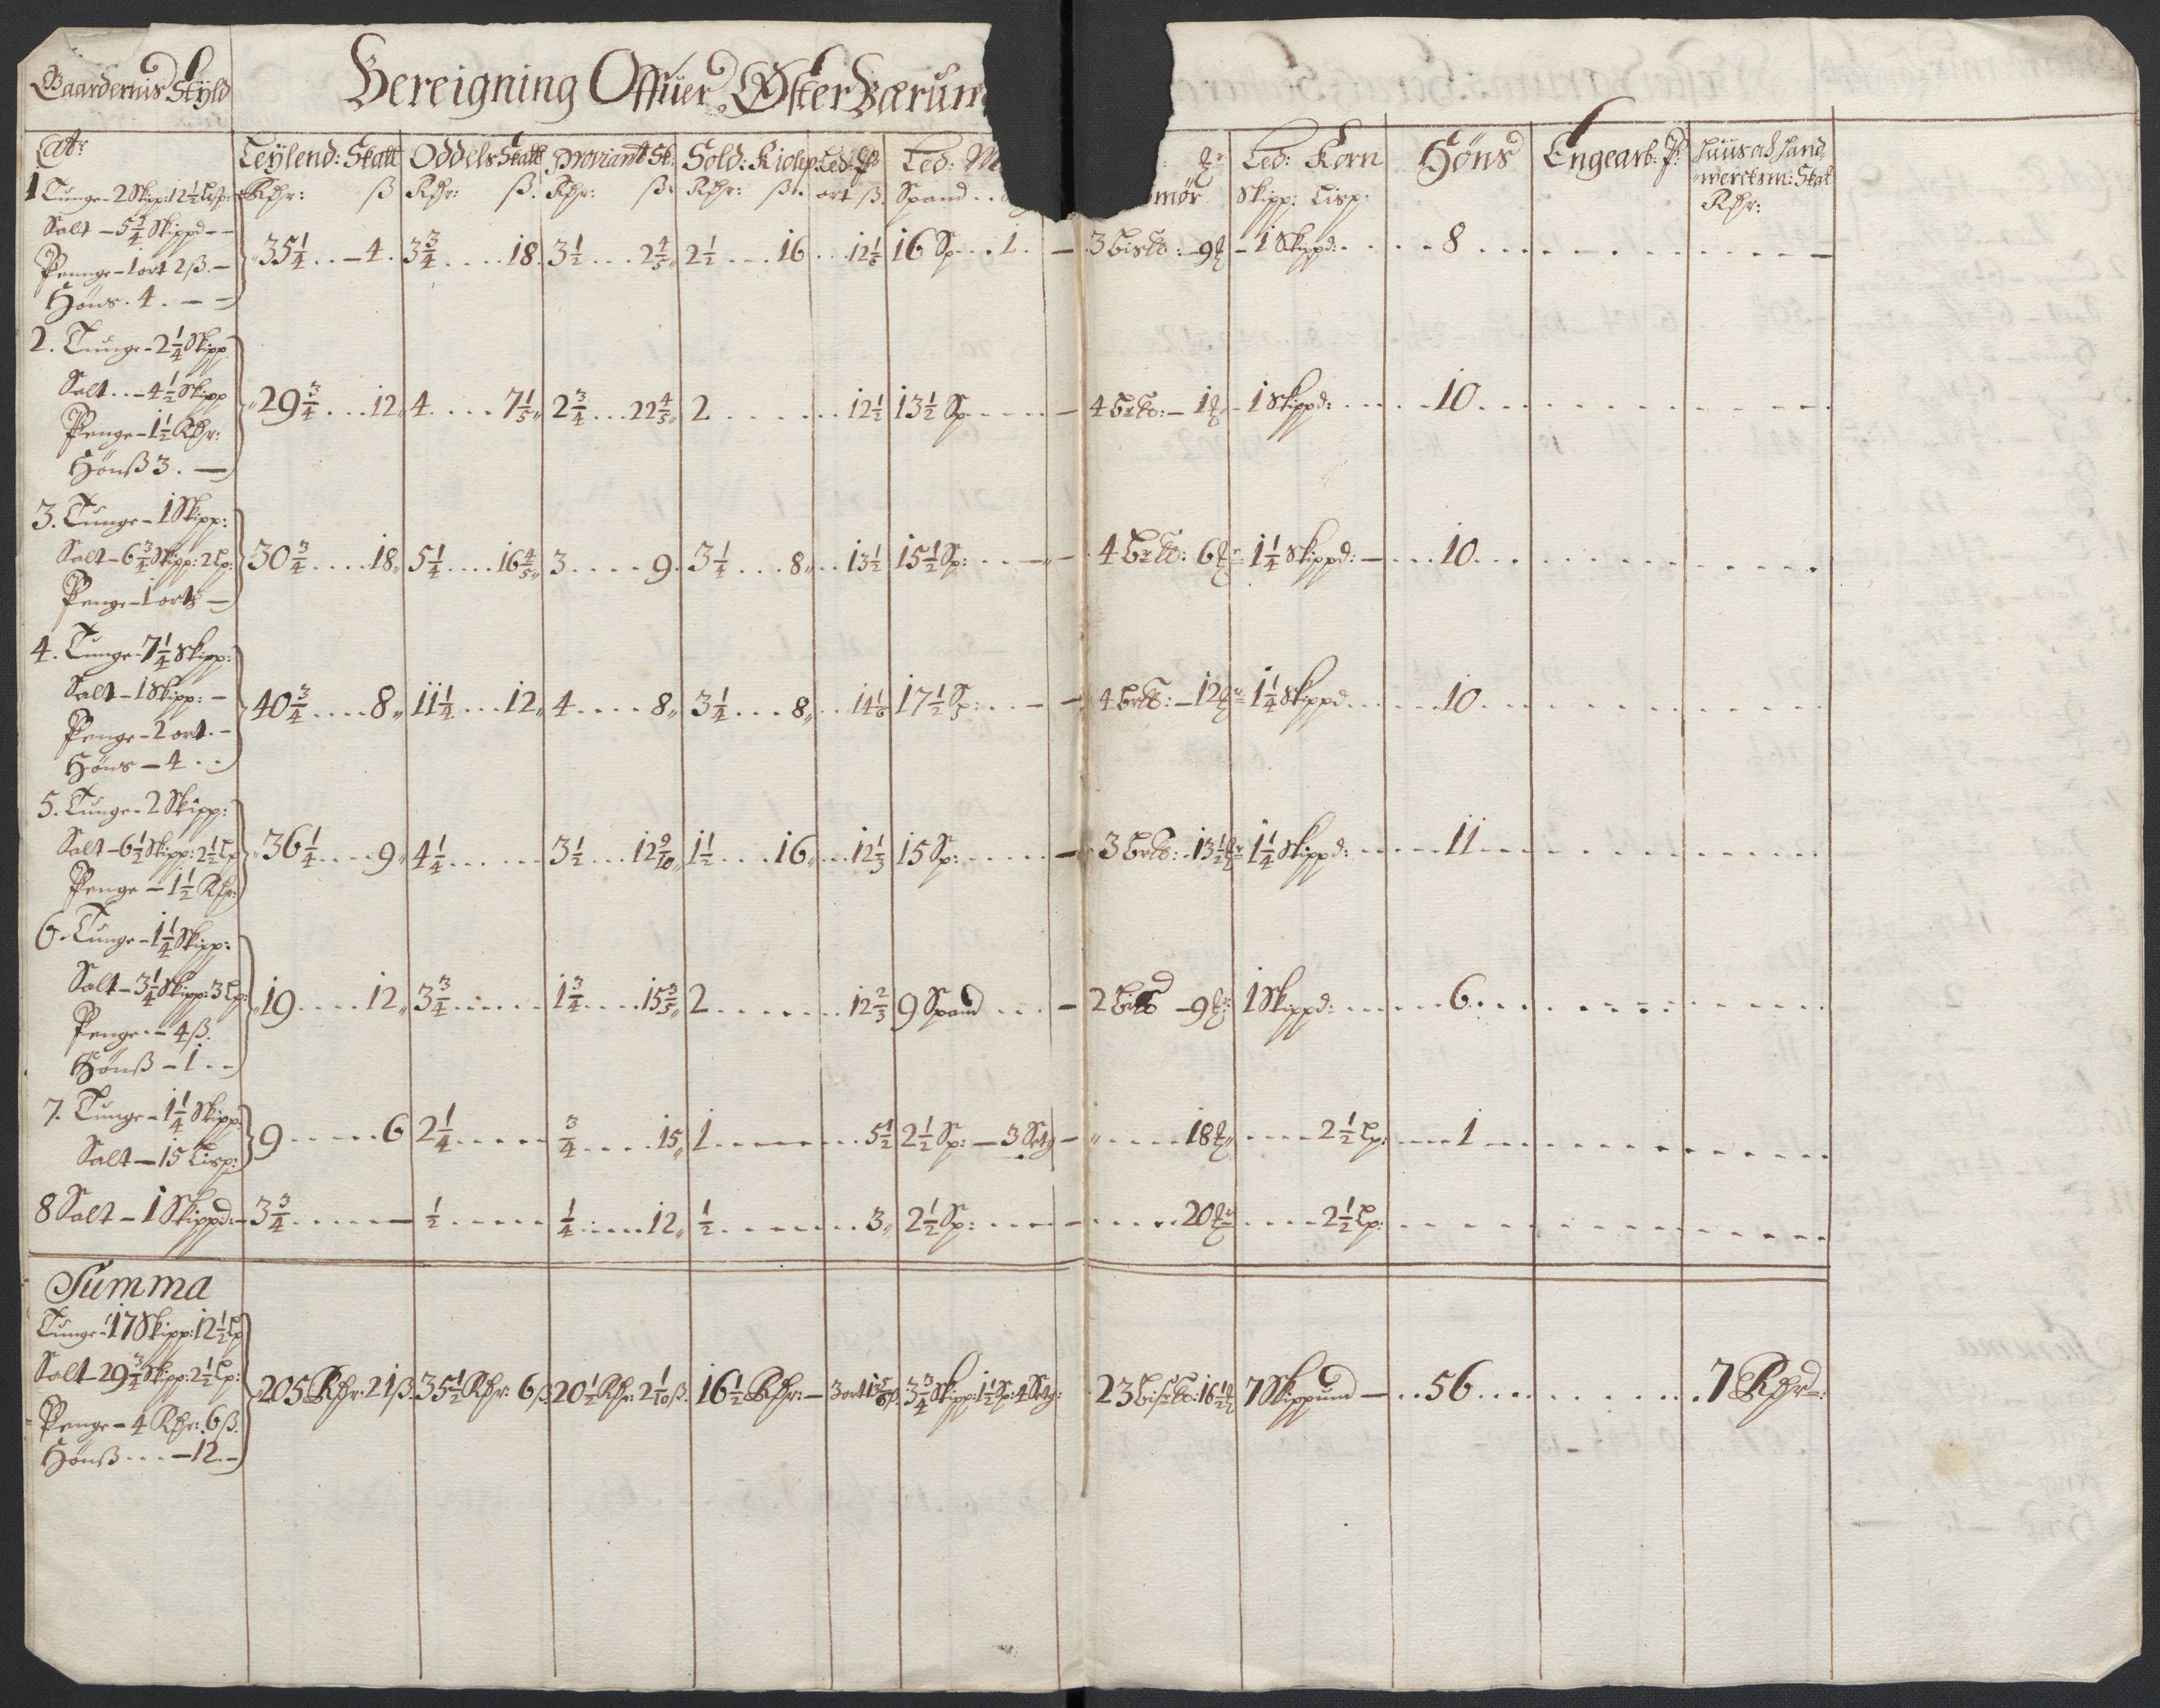 Gaardernis Skyld
Bereigning Offuer Øster Bærum
Latr
Leylend: Skatt Oddels Skatt Proviant Sk: Sold: Kiolep: Led: Led: M
Led: Korn Høns Engearb: P: Huus ad Hand
werckm: Skat
Rdr: ß Rdr: ß. Rdr: ß. Rdr: ß. ort ß. Spand
mør Skipp: Lisp: Rdr:
1 Tunge - 2 Skipp: 12½ Lisp:
Salt - 5¾ Skippd - -
Pennge - 1 ort 2 ß. -
Høns. 4. - -
35¼ . . - 4. 3¾ . . . . 18. 3½ . . . 2⅘ 2½ . . . 16 . . . 12⅙ 16 Sp . . . 1. - 3 Bis - 9 - 1 Skippd: . . . . 8 . . . .
2. Tunge - 2¼ Skipp
Salt . . - 4½ Skipp
Penge - 1½ Rdr:
Hønß 3. -
29¾ . . . 12 4 . . . . 7⅕ 2¾ . . . 22⅘ 2 . . . . . . 12½ 13½ Sp . . . . - 4 - 1 - 1 Skippd: . . . . 10 . . . .
3. Tunge - 1 Skipp:
Salt - 6¾ Skipp: 2 Lp:
Penge - 1 ort -
30¾ . . . . 18 5¼ . . . . 16⅘ 3 . . . . 9. 3¼ . . . 8 . . . 13½ 15½ Sp: . . - 4 6 1¼ Skippd: - . . . 10 . . . .
4. Tunge - 7¼ Skipp:
Salt - 1 Skipp: -
Penge - 2 ort. -
Høns - 4 . .
40¾ . . . . 8 11¼ . . . 12 4 . . . . 8 3¼ . . . 8 . . . 14⅙ 17½ Sp: . . - 4 - 12 1¼ Skippd . . . . 10 . . . .
5. Tunge - 2 Skipp:
Salt - 6½ Skipp: 2½ Lp
Penge - 1½ Rdr:
36¼ . . . . 9 4¼ . . . . . 3½ . . . 12 9/10 1½ . . . 16 . . . 12⅓ 15 Sp: . . . . - 3 - 13½ 1¼ Skippd: . . . . 11 . . . .
6. Tunge - 1¼ Skipp:
Salt - 3¼ Skipp: 3 Lp:
Penge - - 4 ß.
Hønß - 1 . .
19 . . . . 12 3¾ . . . . . 1¾ . . . . 15⅗ 2 . . . . . . . 12⅔ 9 Spand . . . - 2 - 9 1 Skippd: . . . . 6 . . . .
7. Tunge - 1¼ Skipp:
Salt - 15 Lisp:
9 . . . . . 6 2¼ . . . . . ¾ . . . . 15 1 . . . . . . 5½ 2½ Sp: - 3 Setg - . . . . 18 . . . . 2½ Lp: . . . 1 . . . .
8 Salt - 1 Skippd: - 3¾ . . . . . - ½ . . . . . ¼ . . . . 12 ½ . . . . . . 3 2½ Sp: . . . . - . . . . 20 . . . . 2½ Lp: . . . .
Summa
Tunge - 17 Skipp: 12½ Lp
Salt - 29¾ Skipp: 2½ Lp:
Penge - 4 Rdr: 6 ß.
Hønß . . . - 12. -
205 Rdr: 21 ß. 35½ Rdr: 6 ß 20½ Rdr: 2 1/10 ß. 16½ Rdr: - 3 ort 13⅚ ß. 3¾ Skipp: 1½ Sp: 4 Setg: 23 Bis 16½ 7 Skippund - . . 56 . . . . . . . 7 Rdr: